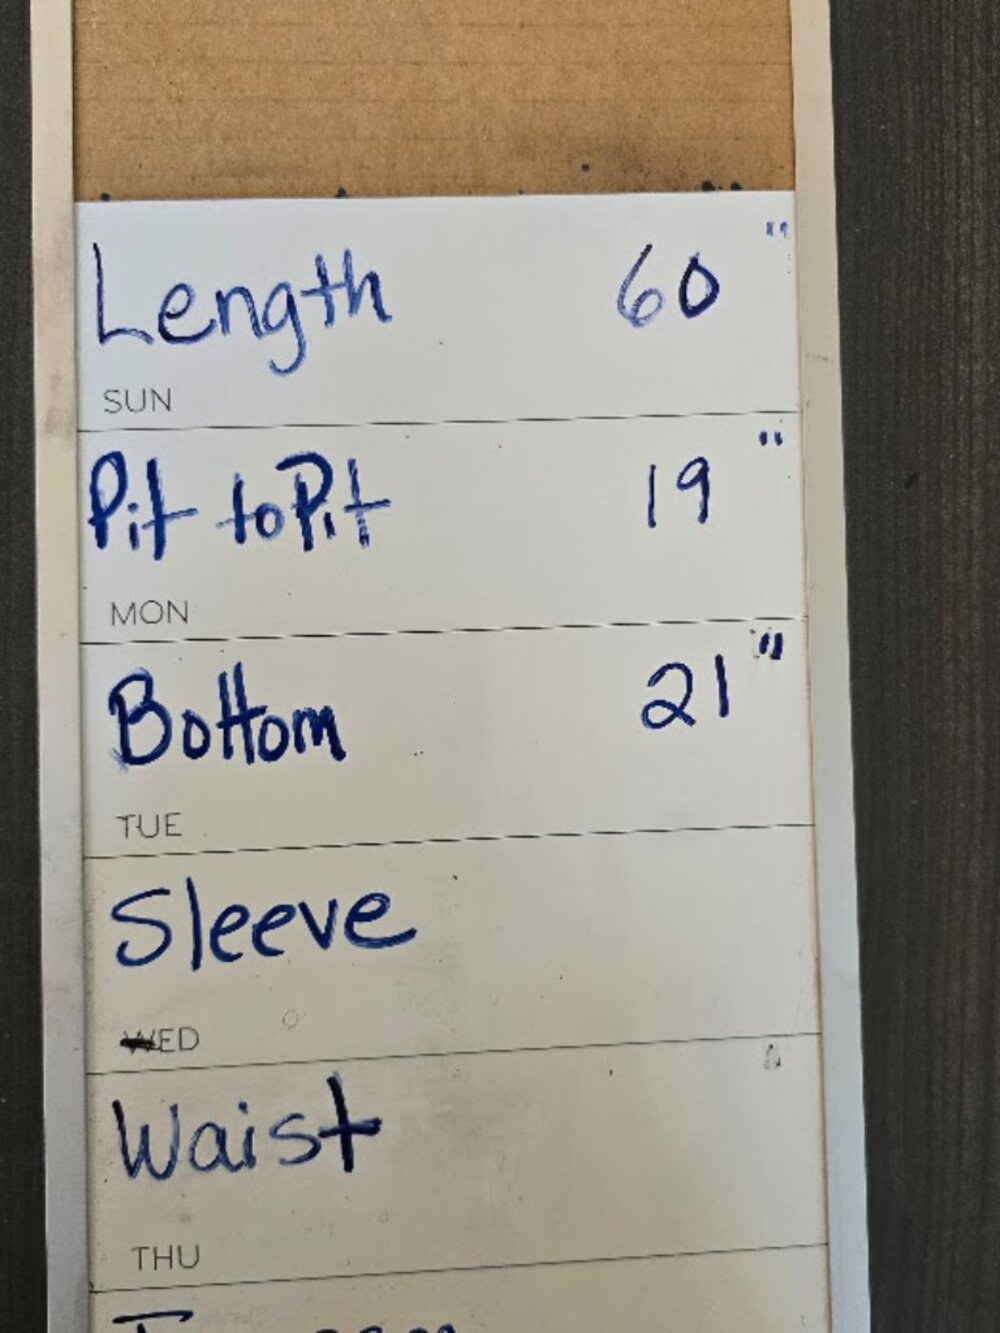 Length 60 "
SUN
Pit to Pit 19 "
MON
Bottom 21 "
TUE
Sleeve
WED
Waist
THU